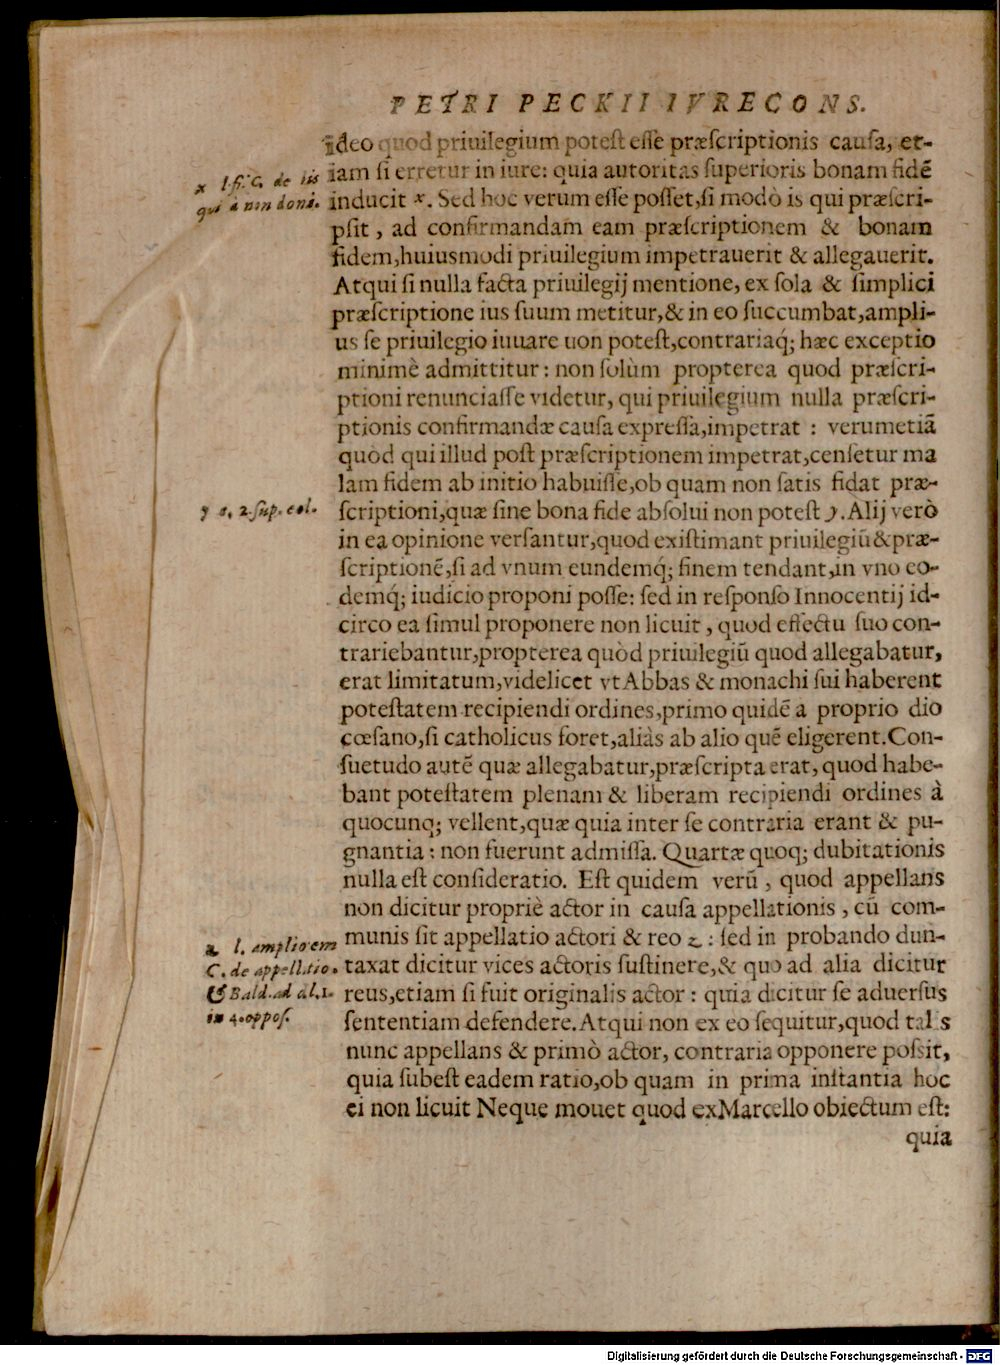 PETRI PECKII IVRECONS.
ideo quod priuilegium potest esse præscriptionis causa, et-
iam si erretur in iure: quia autoritas superioris bonam fidē
inducit x. Sed hoc verum esse posset, si modò is qui præscri-
psit, ad confirmandam eam præscriptionem & bonam
fidem, huiusmodi priuilegium impetrauerit & allegauerit.
Atqui si nulla facta priuilegij mentione, ex sola & simplici
præscriptione ius suum metitur, & in eo succumbat, ampli-
us se priuilegio iuuare uon potest, contrariaq́; hæc exceptio
minimè admittitur: non solùm propterea quod præscri-
ptioni renunciasse videtur, qui priuilegium nulla præscri-
ptionis confirmandæ causa expressà, impetrat: verumetiā
quòd qui illud post præscriptionem impetrat, censetur ma
lam fidem ab initio habuisse, ob quam non satis fidat præ-
scriptioni, quæ sine bona fide absolui non potest y. Alij verò
in ea opinione versantur, quod existimant priuilegiū & præ-
scriptionē, si ad vnum eundemq́; finem tendant, in vno eo-
demq́; iudicio proponi posse: sed in responso Innocentij id-
circo ea simul proponere non licuit, quod effectu suo con-
trariebantur, propterea quòd priuilegiū quod allegabatur,
erat limitatum, videlicet vt Abbas & monachi sui haberent
potestatem recipiendi ordines, primo quidē a proprio dio
cœsano, si catholicus foret, aliàs ab alio quē eligerent. Con-
suetudo autē quæ allegabatur, præscripta erat, quod habe-
bant potestatem plenam & liberam recipiendi ordines à
quocunq; vellent, quæ quia inter se contraria erant & pu-
gnantia: non fuerunt admissa. Quartæ quoq; dubitationis
nulla est consideratio. Est quidem verū, quod appellans
non dicitur propriè actor in causa appellationis, cū com-
munis sit appellatio actori & reo z: sed in probando dun-
taxat dicitur vices actoris sustinere, & quo ad alia dicitur
reus, etiam si fuit originalis actor: quia dicitur se aduersus
sententiam defendere. Atqui non ex eo sequitur, quod talis
nunc appellans & primò actor, contraria opponere possit,
quia subest eadem ratio, ob quam in prima instantia hoc
ei non licuit Neque mouet quod ex Marcello obiectum est:
quia
x l. fi. C. de iis
qui à non domi.
y s. 2. sup. eol.
z l. ampliorem
C. de appellatio.
& Bald. ad al. 1.
in 4. oppos.
Digitalisierung gefördert durch die Deutsche Forschungsgemeinschaft - DFG